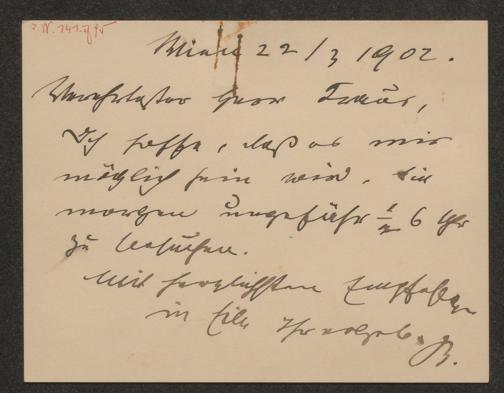 I. N. 141.795
Wien 22/3 1902.
Verehrtester Herr Traus,
Ich hoffe, daß es mir
möglich sein wird, Sie
morgen ungefähr ½ 6 Uhr
zu besuchen.
Mit herzlichsten Empfehlungen
in Eile Ihr ergeb.
B.